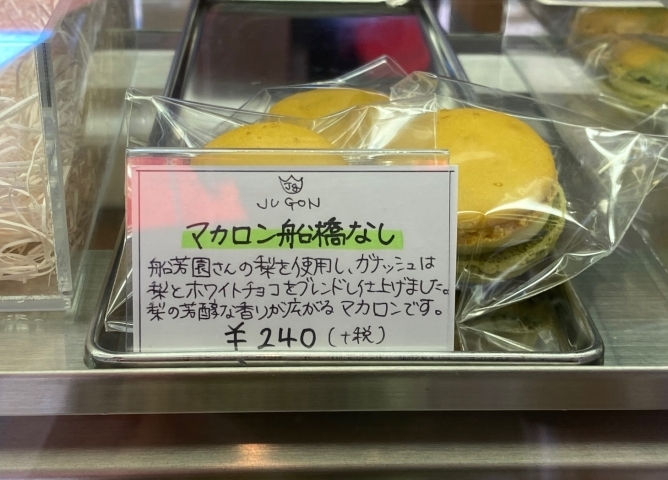 JG
JUGON
マカロン船橋なし
船芳園さんの梨を使用し、ガナッシュは
梨とホワイトチョコをブレンドし仕上げました。
梨の芳醇な香りが広がるマカロンです。
¥240(+税)